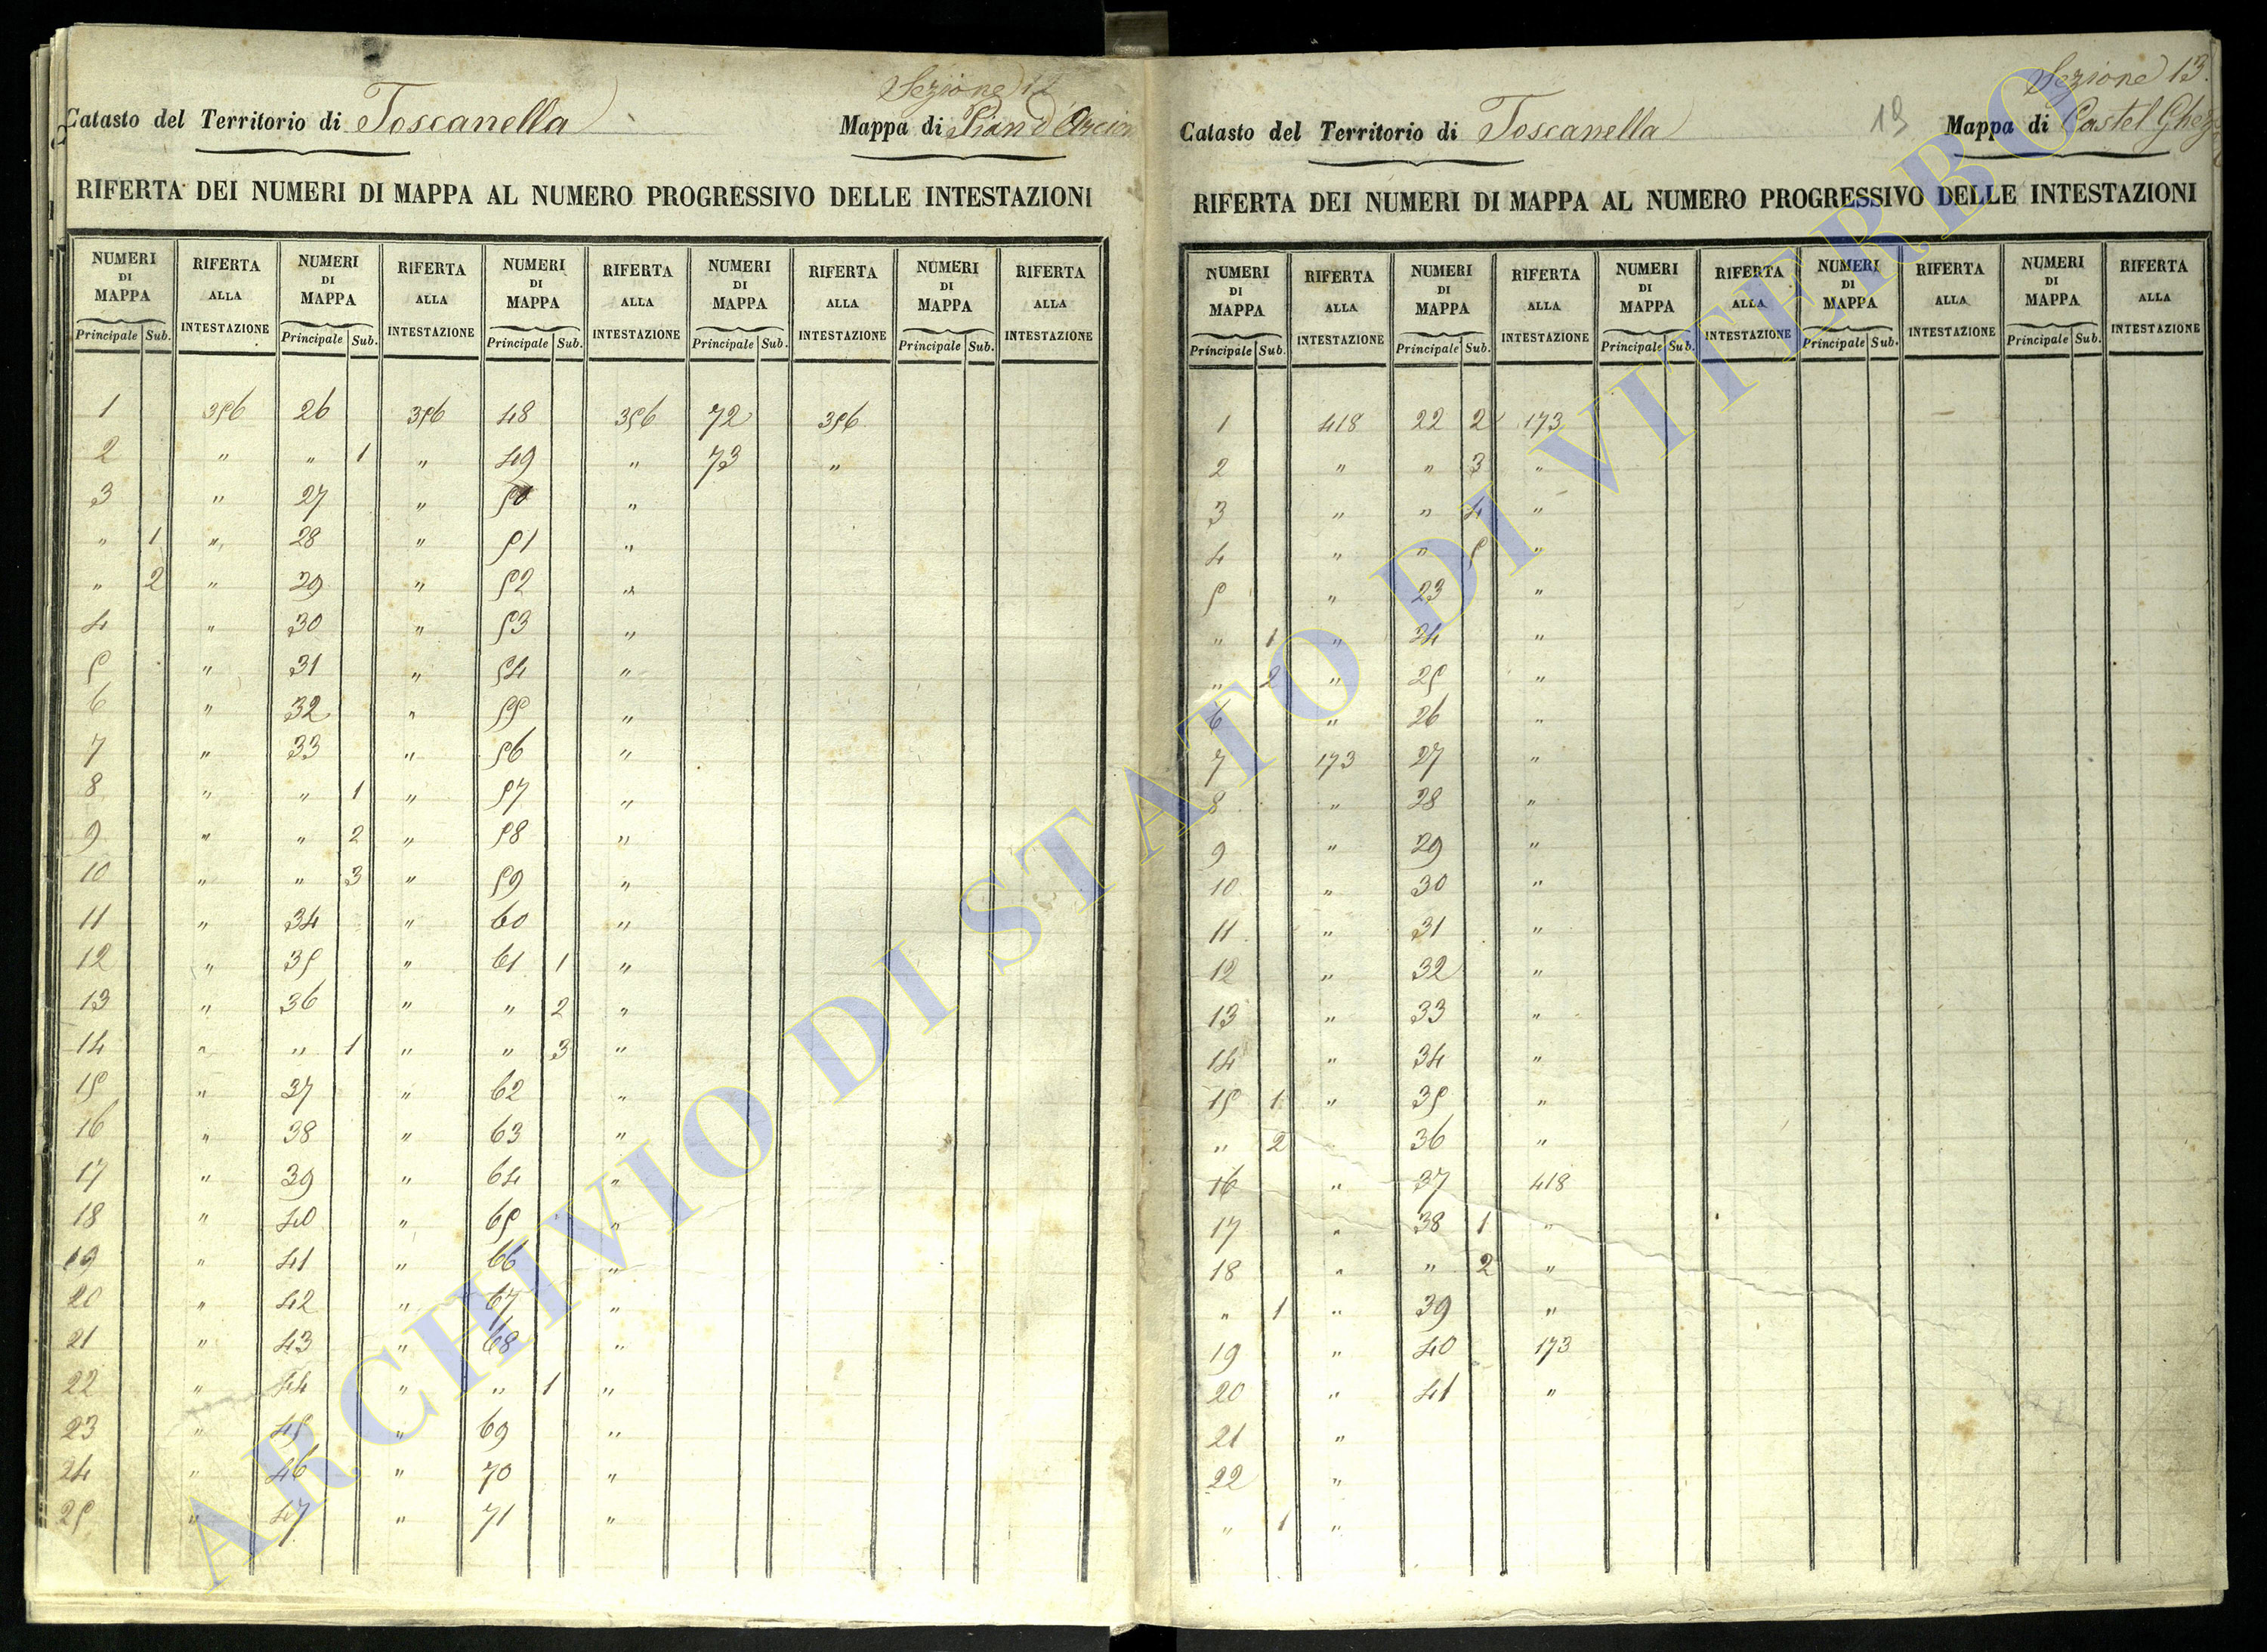 Sezione 12
Catasto del Territorio di Toscanella Mappa di Pian d'Arcion
RIFERTA DEI NUMERI DI MAPPA AL NUMERO PROGRESSIVO DELLE INTESTAZIONI
NUMERI DI MAPPA RIFERTA ALLA INTESTAZIONE NUMERI DI MAPPA RIFERTA ALLA INTESTAZIONE NUMERI DI MAPPA RIFERTA ALLA INTESTAZIONE NUMERI DI MAPPA RIFERTA ALLA INTESTAZIONE NUMERI DI MAPPA RIFERTA ALLA INTESTAZIONE
Principale Sub. Principale Sub. Principale Sub. Principale Sub. Principale Sub.
1 356 26 356 48 356 72 356
2 " " 1 " 49 " 73 "
3 " 27 " 50 "
" 1 " 28 " 51 "
" 2 " 29 " 52 "
4 " 30 " 53 "
5 " 31 " 54 "
6 " 32 " 55 "
7 " 33 " 56 "
8 " " 1 " 57 "
9 " " 2 " 58 "
10 " " 3 " 59 "
11 " 34 " 60 "
12 " 35 " 61 1 "
13 " 36 " " 2 "
14 " " 1 " " 3 "
15 " 37 " 62 "
16 " 38 " 63 "
17 " 39 " 64 "
18 " 40 " 65 "
19 " 41 " 66 "
20 " 42 " 67 "
21 " 43 " 68 "
22 " 44 " " 1 "
23 " 45 " 69 "
24 " 46 " 70 "
25 " 47 " 71 "
Sezione 13.
Catasto del Territorio di Toscanella 19 Mappa di Castel Ghez
RIFERTA DEI NUMERI DI MAPPA AL NUMERO PROGRESSIVO DELLE INTESTAZIONI
NUMERI DI MAPPA RIFERTA ALLA INTESTAZIONE NUMERI DI MAPPA RIFERTA ALLA INTESTAZIONE NUMERI DI MAPPA RIFERTA ALLA INTESTAZIONE NUMERI DI MAPPA RIFERTA ALLA INTESTAZIONE NUMERI DI MAPPA RIFERTA ALLA INTESTAZIONE
Principale Sub. Principale Sub. Principale Sub. Principale Sub. Principale Sub.
1 418 22 2 173
2 " " 3 "
3 " " 4 "
4 " " 5 "
5 " 23 "
" 1 " 24 "
" 2 " 25 "
6 " 26 "
7 173 27 "
8 " 28 "
9 " 29 "
10 " 30 "
11 " 31 "
12 " 32 "
13 " 33 "
14 " 34 "
15 1 " 35 "
" 2 36 "
16 " 37 418
17 " 38 1 "
18 " " 2 "
" 1 " 39 "
19 " 40 173
20 " 41 "
21 "
22 "
" 1 "
ARCHIVIO DI STATO DI VITERBO